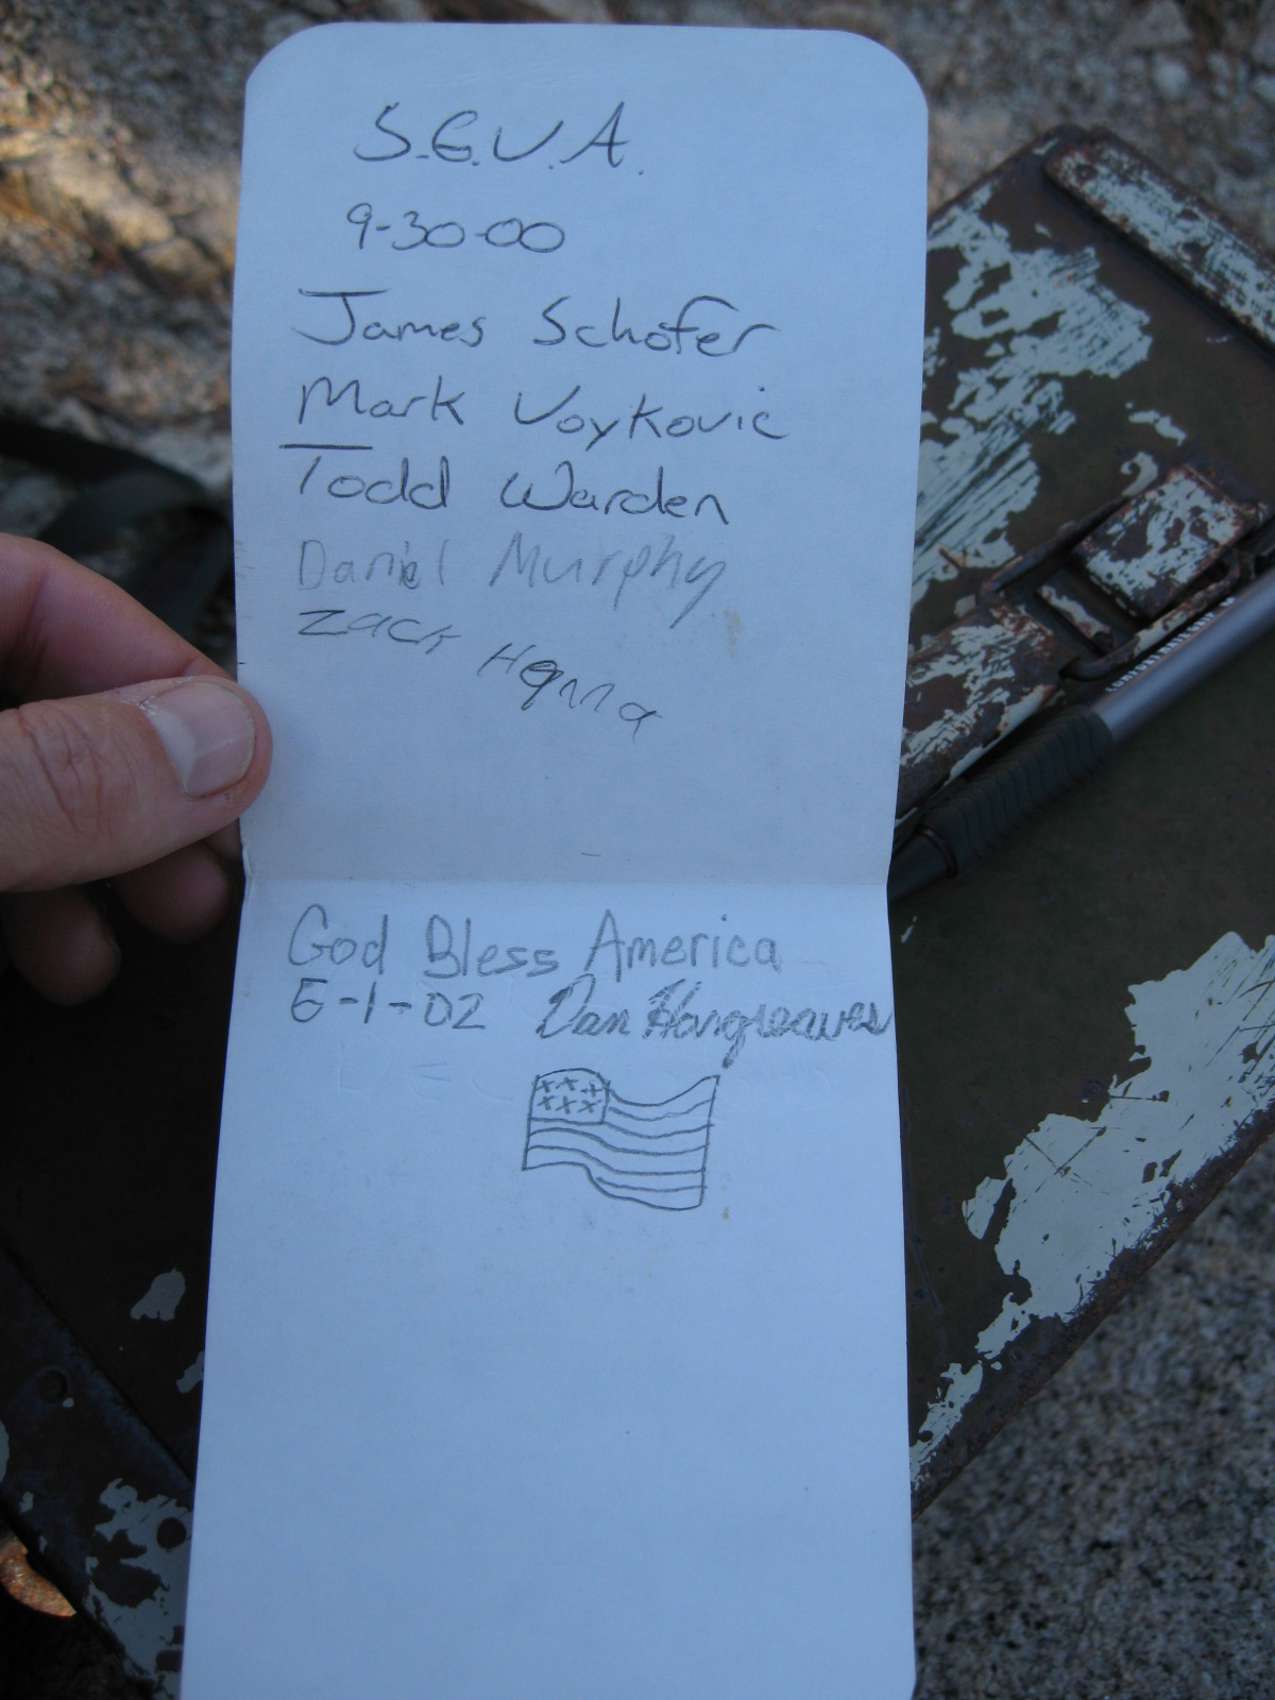 S.E.V.A.
9-30-00
James Schafer
Mark Voykovic
Todd Warden
Daniel Murphy
Zack Henna
God Bless America
5-1-02 Dan Hargreaves